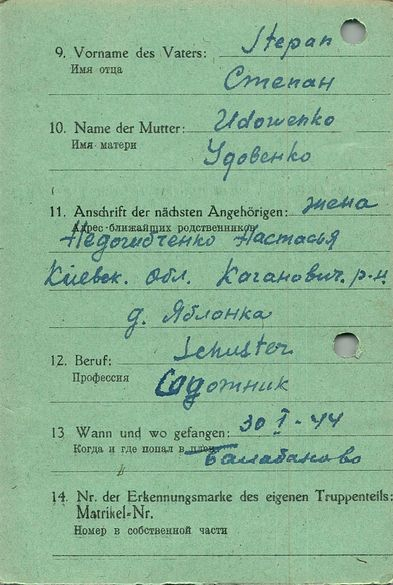 9. Vorname des Vaters: Stepan
Имя отца Степан
10. Name der Mutter: Udowenko
Имя матери Удовенко
11. Anschrift der nächsten Angehörigen: жена
Адрес ближайших родственников
Настасья
Киевск. обл. Каганович. р-н.
д. Яблонка
12. Beruf: Schuster
Профессия Садожник
13 Wann und wo gefangen: 30 I - 44
Когда и где попал в плен Балабаново
14. Nr. der Erkennungsmarke des eigenen Truppenteils:
Matrikel-Nr.
Номер в собственной части